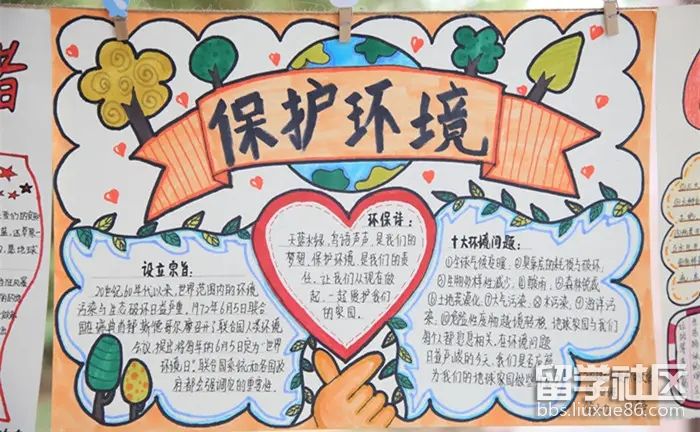 保护环境
设立宗旨:
20世纪60年代以来,世界范围内的环境
污染与生态破坏日益严重,1972年6月5日联合
国在瑞典首都斯德哥尔摩召开了联合国人类环境
会议,提出将每年的6月5日定为"世界
环境日"。联合国系统和各国政
府都会强调它的重要性。
环保诗:
天蓝水绿,鸟语声声,是我们的
梦想,保护环境,是我们的责
任,让我们从现在做
起,一起维护我们
的家园。
十大环境问题:
①全球气候变暖,②臭氧层的耗损与破坏,
③生物多样性减少,④酸雨,⑤森林锐减
⑥土地荒漠化,⑦大气污染,⑧水污染,⑨海洋污
染,⑩危险性废物越境转移,地球家园与我们
每个人都息息相关,在环境问题
日益严峻的今天,我们是否应该
为我们的地球家园做些
者
留学社区
bbs.liuxue86.com